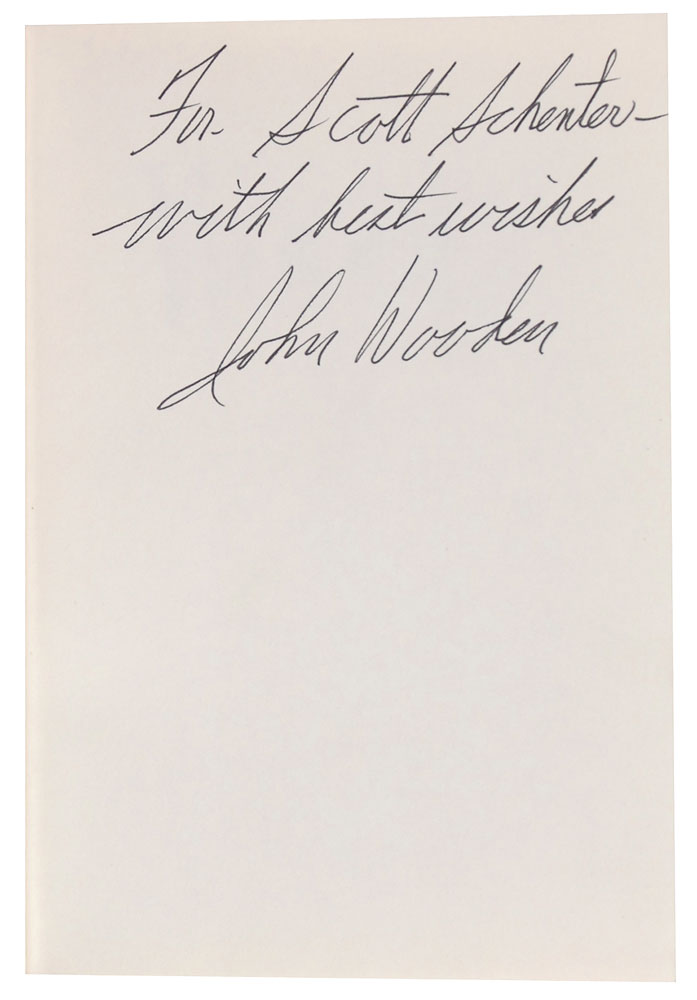 For Scott Schenter-
with best wishes
John Wooden